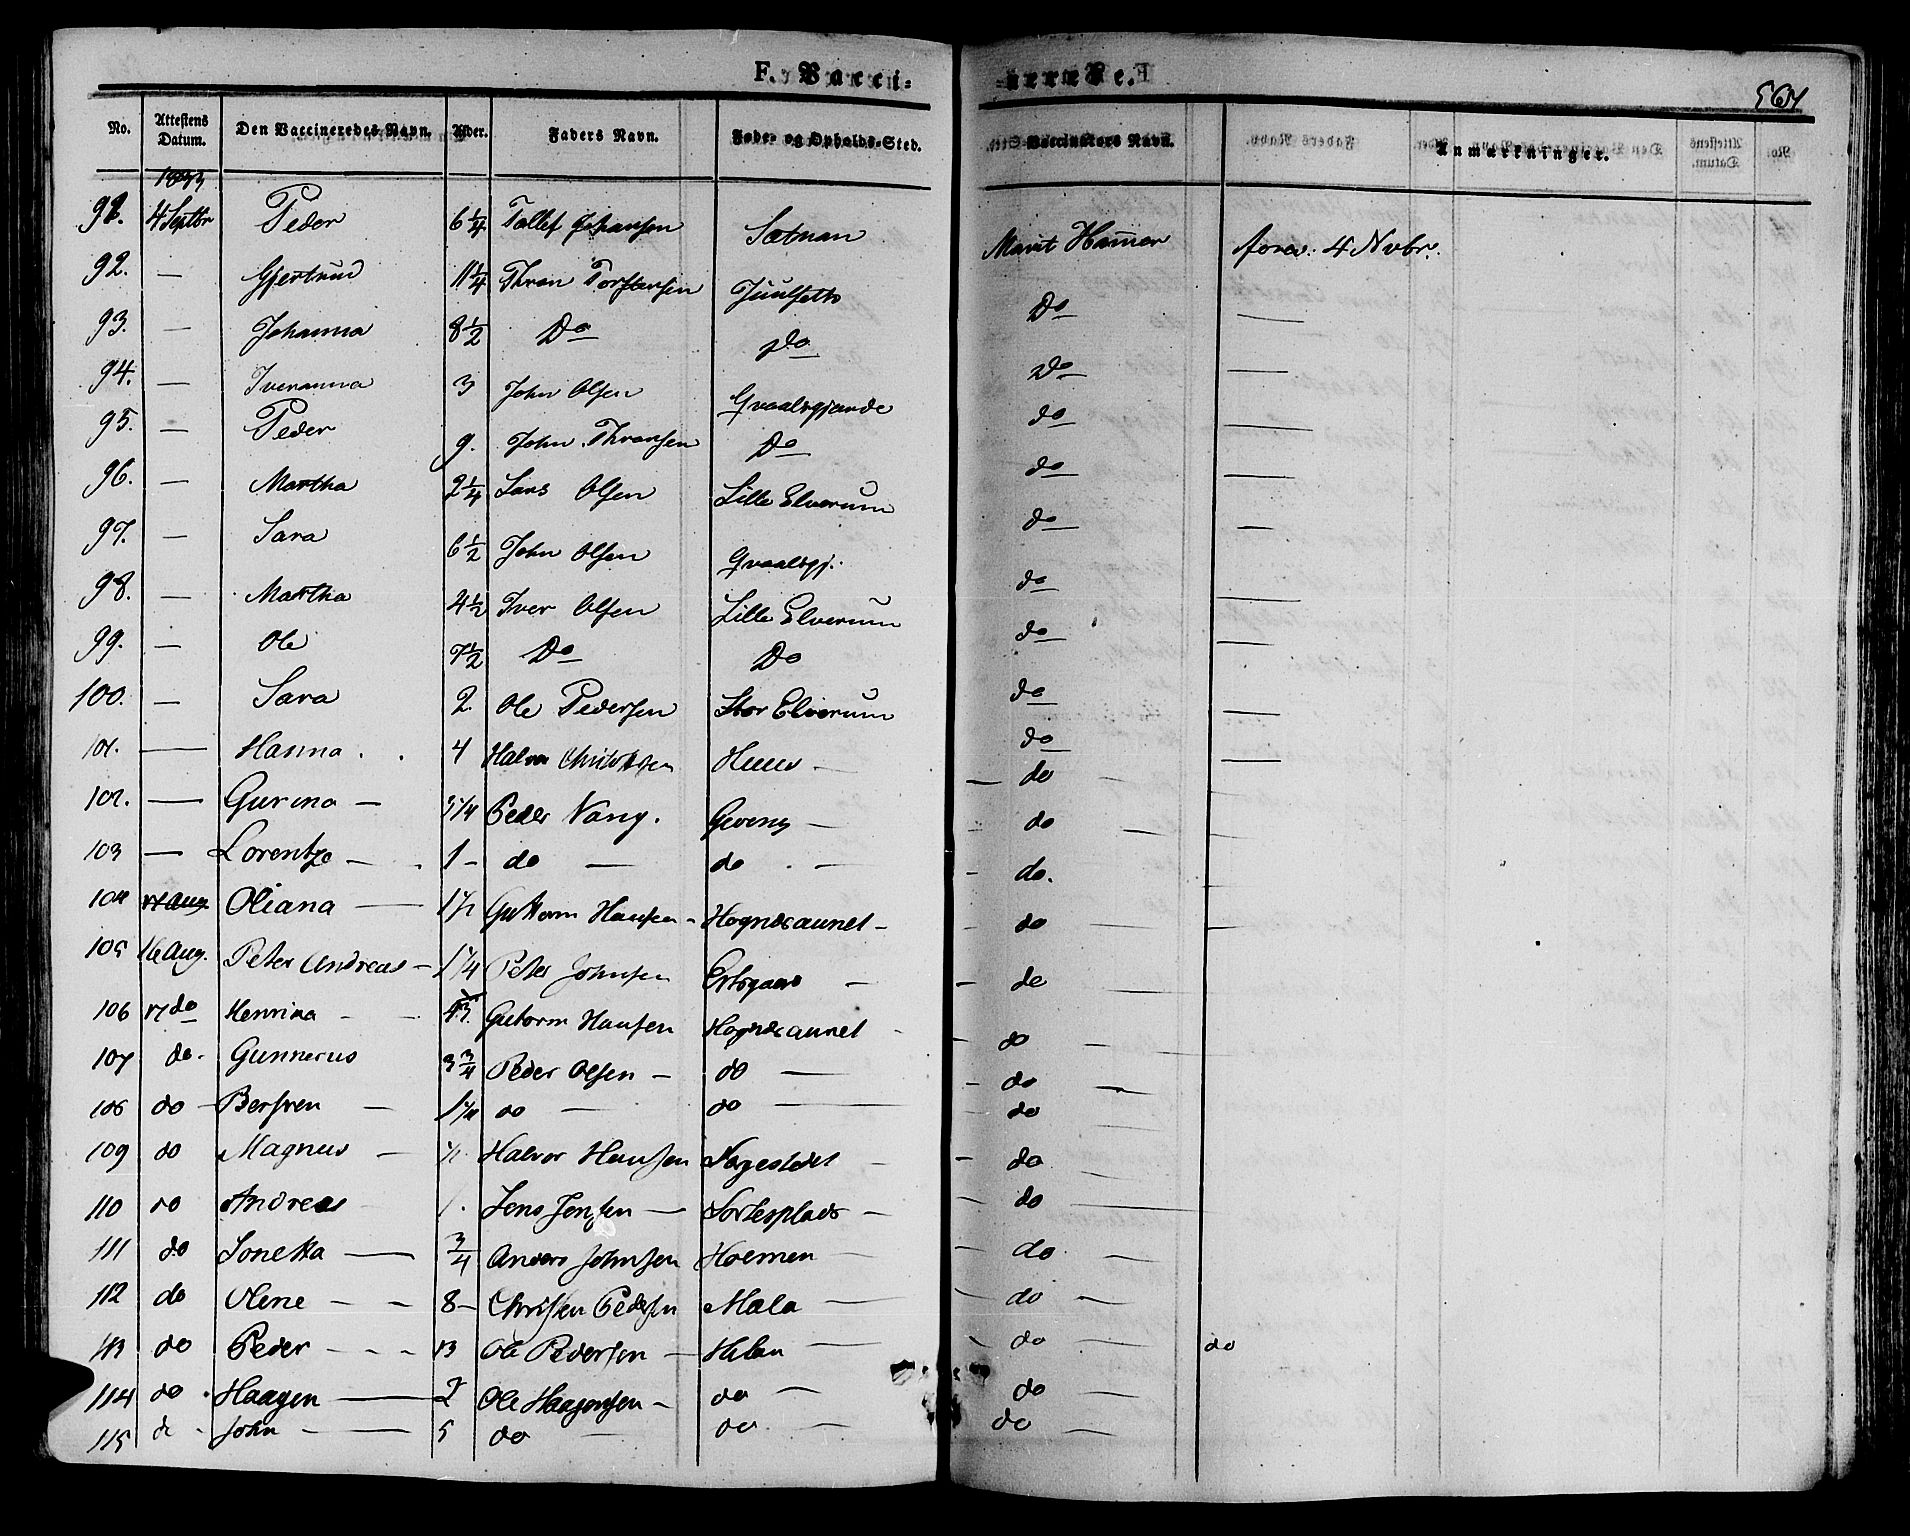 F. Vacci-
nerede.
561
No. | Attestens Datum. | Den Vaccineredes Navn. | Alder. | Faders Navn. | Føde- og Opholds-Sted. | Vaccinators Navn. | Anmærkninger.
1833
91. | 4 Septbr | Peder | 6 1/4 | Tollef Johansen | Sætnan | Marit Hammer | forev. 4 Nvbr.
92. | — | Gjertrud | 11 1/4 | Thron Torstensen | Juulsetto | Do | —
93. | — | Johanna | 8 1/2 | Do | Do | Do | —
94. | — | Iveranna | 3 | John Olsen | Gvaalsgjerde | do | —
95. | — | Peder | 9. | John Thronsen | Do | do | —
96. | — | Martha | 2 1/4 | Lars Olsen | Lille Elverum | do | —
97. | — | Sara | 6 1/2 | John Olsen | Gvaalsgj. | do | —
98. | — | Martha | 4 1/2 | Iver Olsen | Lille Elverum | do | —
99. | — | Ole | 7 1/2 | Do | Do | do | —
100. | — | Sara | 2. | Ole Pedersen | Stor Elverum | do | —
101. | — | Hanna | 4 | Halvor | — | do
102. | — | Gurina — | Peder Vang. | Geving — | do —
103 | — | Lorentze — | 1 - | do — | do — | do.
104 | 17 Aug. | Oliana — | 1 1/2 | Guttorm Hansen - | Hognesaunet - | do
105 | 16 Aug. | Peter Andreas - | 1 1/4 | Peter Johnsen | Ertsgaard — | do —
106 | 17 do | Henrina - | Guttorm Hansen | Hognesaunet - | do —
107 | do. | Gunnerus | 3 3/4 | Peder Olsen — | do — | do —
108 | do - | Bersven — | do — | do — | do —
109 | do | Magnus - | 1/2 | Halvor Hansen | — | do —
110 | do | Andreas | 1. | Jens Jensen — | Sortesplads - | do —
111 | do | Jonetta — | 3/4 | Anders Johnsen | Holmen — | do —
112 | do | Olene - - | 8 - | Pedersen | Mæla — | do —
113 | do | Peder - - - | 13 | Ole Pedersen — | — | do — | do
114 | do . | Haagen — | 2 | Ole Haagensen - | do — | do —
115 | do . | John — | 5 | do — | do — | do —